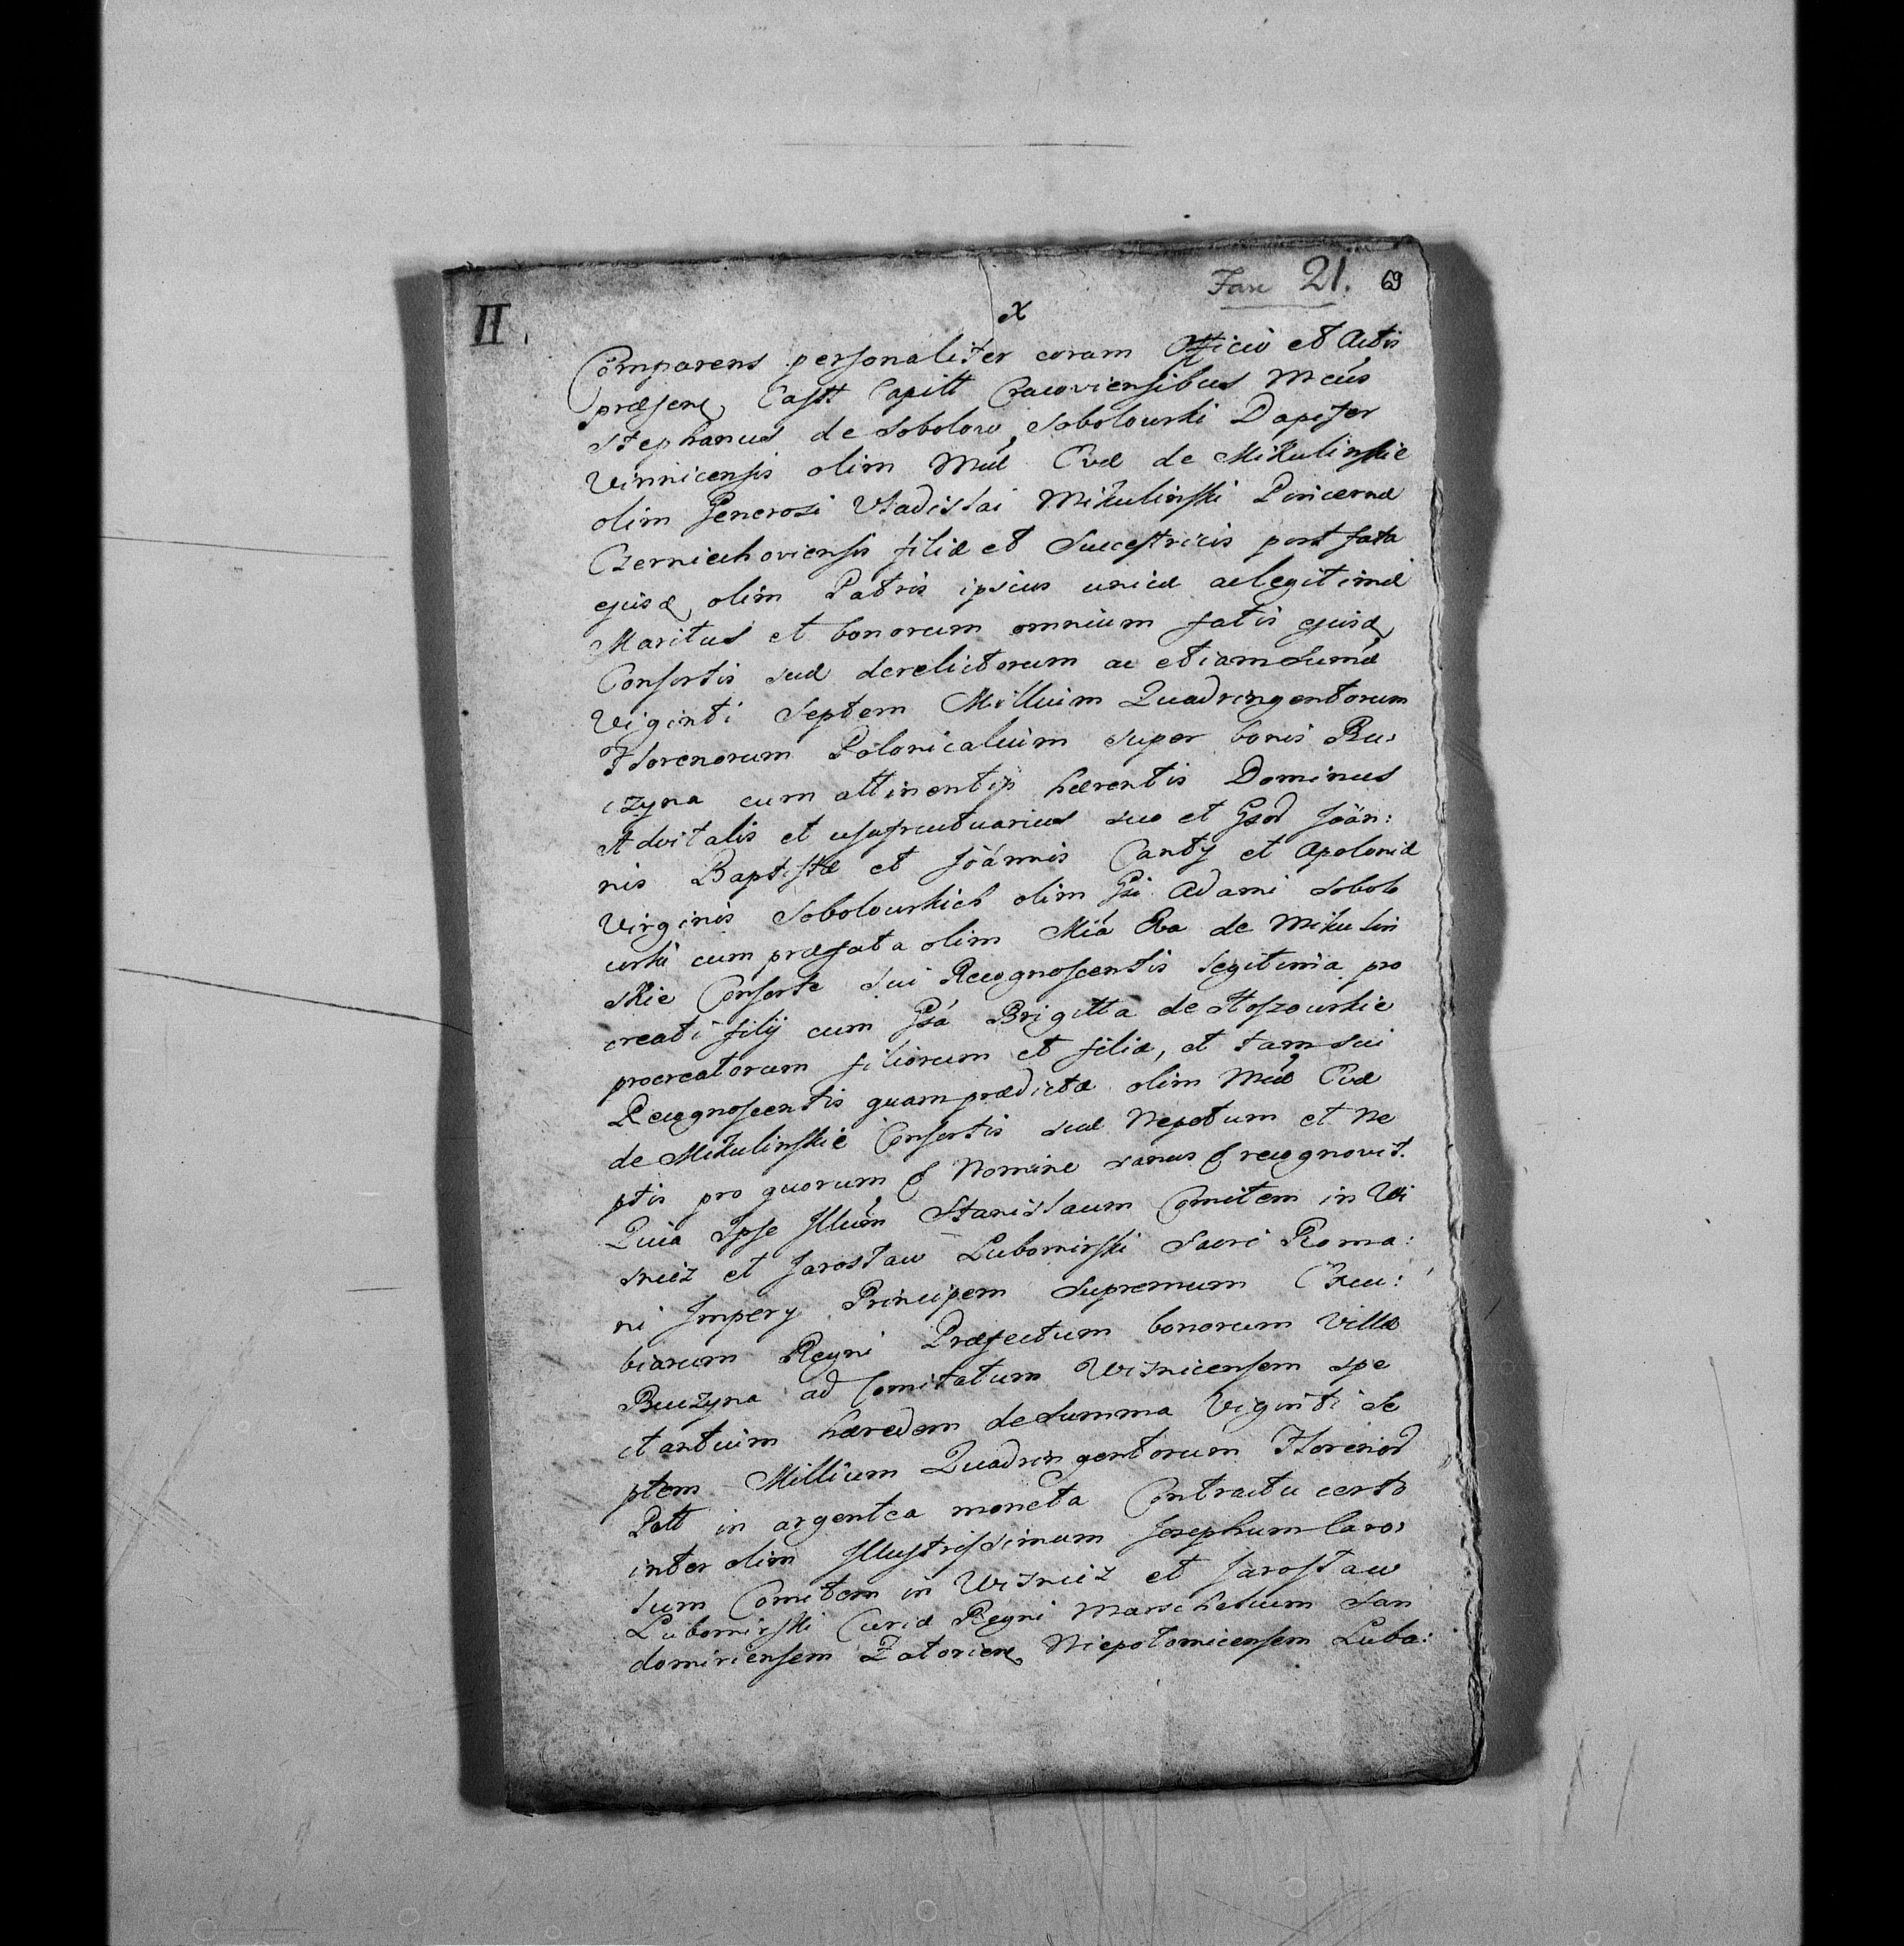 II.
Fasc 21. 69
x
Comparens personaliter coram Officio et Actis
præsen Castr Capitt Cracoviensibus Mcus
Stephanus de Sobolow Sobolowski Dapifer
Vinnicensis olim Mcæ Evæ de Mikulinskie
olim Generosi Vladislai Mikulinski Pincernæ
Czerniechoviensis filiæ et Successtricis post fata
ejusd olim Patris ipsius unicæ ac legitimæ
Maritus et bonorum omnium fatis ejusd
Consortis suæ derelictorum ac etiam Sumæ
Viginti Septem Millium Quadringentorum
Florenorum Polonicalium super bonis Bu:
czyna cum attinentijs hærentis Dominus
Advitalis et usufructuarius suo et Gsod Joan:
nis Baptistæ et Joannis Cantij et Apoloniæ
Virginis Sobolowskich olim Gsi Adami Sobolo
wski cum præfata olim Mca Eva de Mikulin
skie Consorte sui Recognoscentis legitima pro
creati filij cum Gsa Brigitta de Stoszowskie
procreatorum filiorum et filiæ, et tam sui
Recognoscentis quam prædictæ olim Mcæ Evæ
de Mikulinskie Consortis suæ Nepotum et Ne
ptis pro quorum Nomine sanus recognovit.
Quia Ipse Illum Stanislaum Comitem in Wi
snicz et Jaroslaw Lubomirski Sacri Roma:
ni Impery Principem Supremum Excu:
biarum Regni Præfectum bonorum Villæ
Buczyna ad Comitatum Wisnicensem spe
ctantium hæredem de Summa Viginti Se
ptem Millium Quadringentorum Florenod
Poll in argentea moneta Contractu certo
inter olim Illustrissimum Josephum Caro:
lum Comitem in Wisnicz et Jaroslaw
Lubomirski Curiæ Regni Marschalcum San
domiriensem Zatorien Niepolomicensem Luba: